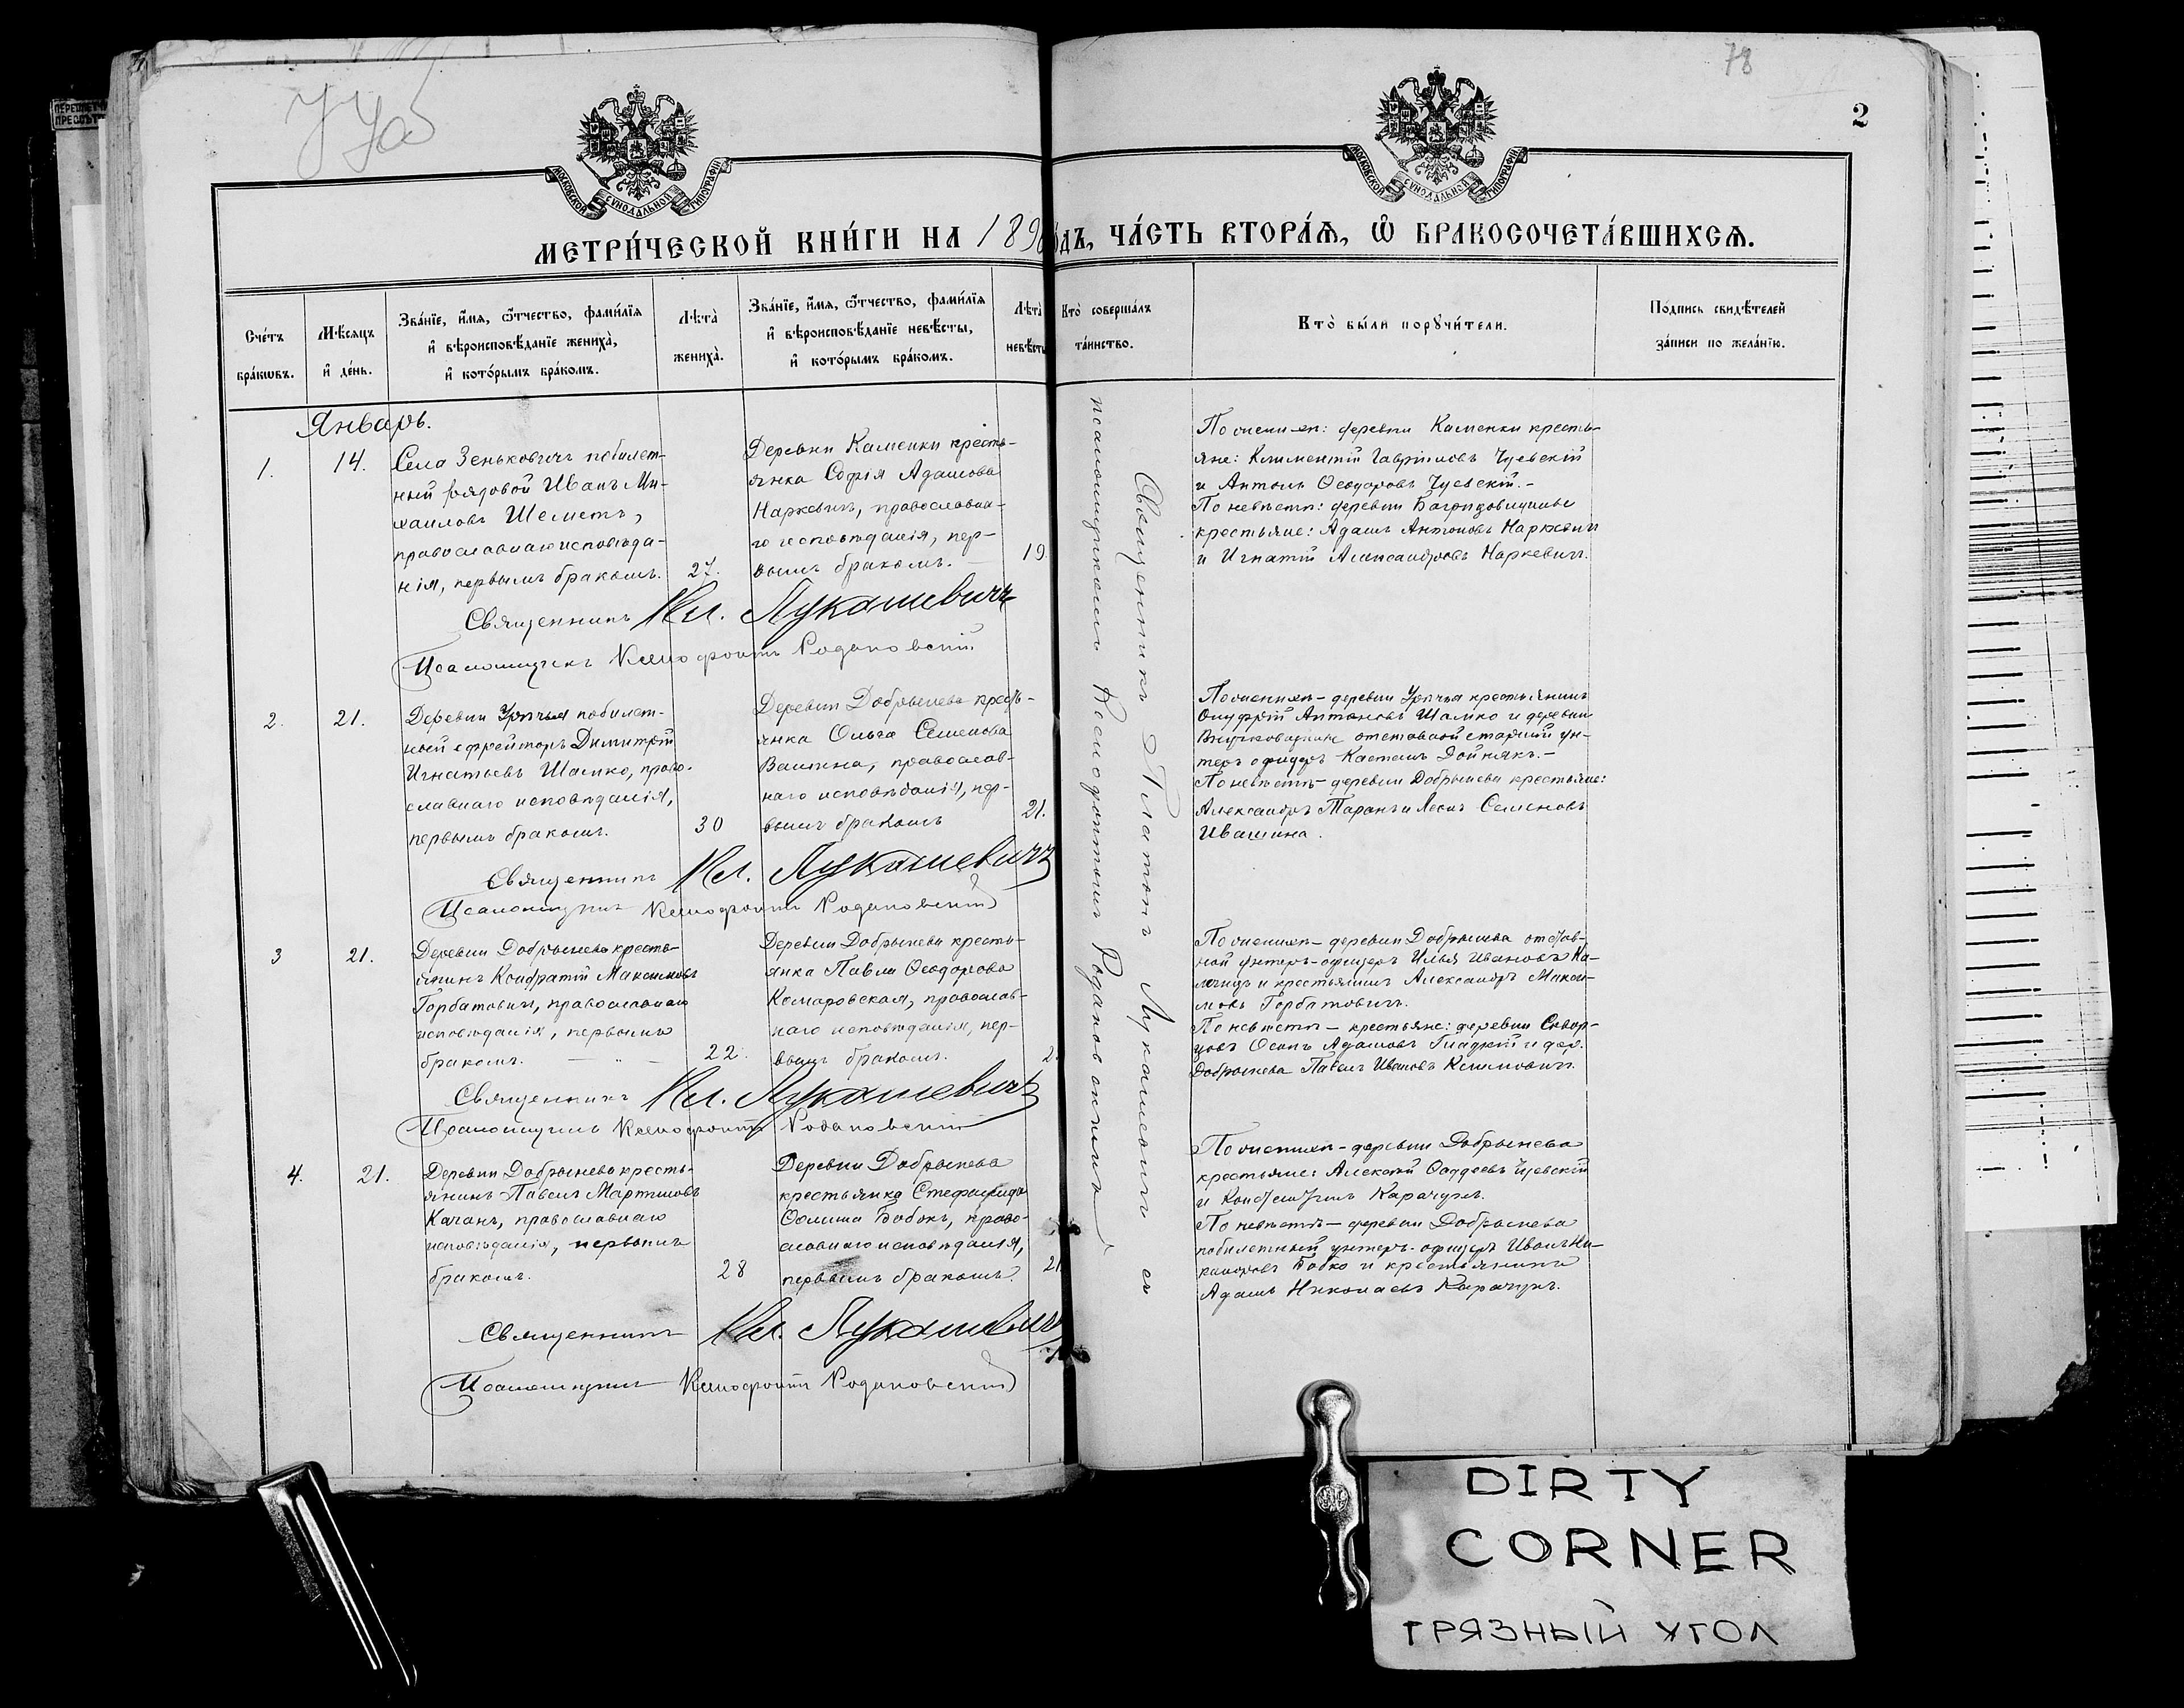 78
2
МОСКОВСКОЙ СѴНОДАЛЬНОЙ ТИПОГРАФІИ
МОСКОВСКОЙ СѴНОДАЛЬНОЙ ТИПОГРАФІИ
МЕТРИ́ЧЕСКОЙ КНИ́ГИ НА 189
ДЪ, ЧА́СТЬ ВТОРА́Я, Ѡ҆ БРАКОСОЧЕТА́ВШИХСЯ.
Сче́тъ бра́кѡвъ.
Мѣ́сяцъ и҆ де́нь.
Зва́нїе, и҆́мя, ѻ҆́тчество, фами́лїя и҆ вѣроисповѣ́данїе жениха̀, и҆ кото́рымъ бра́комъ.
Лѣта̀ жениха̀.
Зва́нїе, и҆́мя, ѻ҆́тчество, фами́лїя и҆ вѣроисповѣ́данїе невѣ́сты, и҆ кото́рымъ бра́комъ.
Лѣта̀ невѣ́сты
Кто̀ соверша́лъ та́инство.
Кто̀ бы́ли порꙋчи́тели.
По́дпись свидѣ́телей за́писи по жела́нїю.
Январь.
1.
14.
Села Зеньковичъ побилет-
ный рядовой Иванъ Ми-
хаиловъ Шеметъ,
православнаго исповѣда-
нія, первымъ бракомъ.
27.
Деревни Каменки кресть-
янка Софія Адамова
Наркевичъ, православна-
го исповѣданія, пер-
вымъ бракомъ.
19
По жениху: деревни Каменки кресть-
яне: Климентій Гавріиловъ Чуевскій
и Антонъ Ѳеодоровъ Чуевскій.-
По невѣстѣ: деревни
крестьяне: Адамъ Антоновъ Наркевичъ
и Игнатій Александровъ Наркевичъ.
Священникъ Пл. Лукашевичъ
Псаломщикъ Ксенофонтъ Родаковскій
2.
21.
Деревни Урѣчья побилет-
ный ефрейторъ Димитрій
Игнатьевъ Шамко, право-
славнаго исповѣданія,
первымъ бракомъ.
30
Деревни Добрынева кресть-
янка Ольга Семенова
православ-
наго исповѣданія, пер-
вымъ бракомъ
21.
По жениху - деревни Урѣчья крестьянинъ
Онуфрій Антоновъ Шамко и деревни
отставной старшій ун-
теръ офицеръ Дойнякъ.-
По невѣстѣ - деревни Добрынева крестьяне:
Александръ Таранъ и Леонъ Семеновъ
Ивашина.
Священникъ Пл. Лукашевичъ
Псаломщикъ Ксенофонтъ Родаковскій
3
21.
Деревни Добрынева кресть-
янинъ Кондратій Максимовъ
Горбатовичъ, православнаго
исповѣданія, первымъ
бракомъ.
22.
Деревни Добрынева кресть-
янка Павла Ѳеодорова
Комаровская, православ-
наго исповѣданія, пер-
вымъ бракомъ.
2
По жениху - деревни Добрынева отстав-
ной унтеръ-офицеръ Илья Ивановъ
и крестьянинъ Александръ Макси-
мовъ Горбатовичъ.
По невѣстѣ - крестьяне: деревни Сквор-
цовъ Осипъ Адамовъ Гладкій и дер.
Добрынева Павелъ Ивановъ Климовичъ.
Священникъ Пл. Лукашевичъ
Псаломщикъ Ксенофонтъ Родаковскій
4.
21.
Деревни Добрынева кресть-
янинъ Павелъ Мартиновъ
Качанъ, православнаго
исповѣданія, первымъ
бракомъ.
28
Деревни Добрынева
крестьянка Стефанида
Ѳомина Бобокъ, право-
славнаго исповѣданія,
первымъ бракомъ.
21
По жениху - деревни Добрынева
крестьяне: Алексѣй Ѳаддеевъ Чуевскій
и Константинъ Карачунъ.
По невѣстѣ - деревни Добрынева
побилетный унтеръ-офицеръ Иванъ Ни-
каноровъ Бобко и крестьянинъ
Адамъ Николаевъ Карачунъ.
Священникъ Пл. Лукашевичъ
Псаломщикъ Ксенофонтъ Родаковскій
Священникъ Платонъ Лукашевичъ съ
псаломщикомъ Ксенофонтомъ Родаковскимъ
DIRTY
CORNER
ГРЯЗНЫЙ УГОЛ